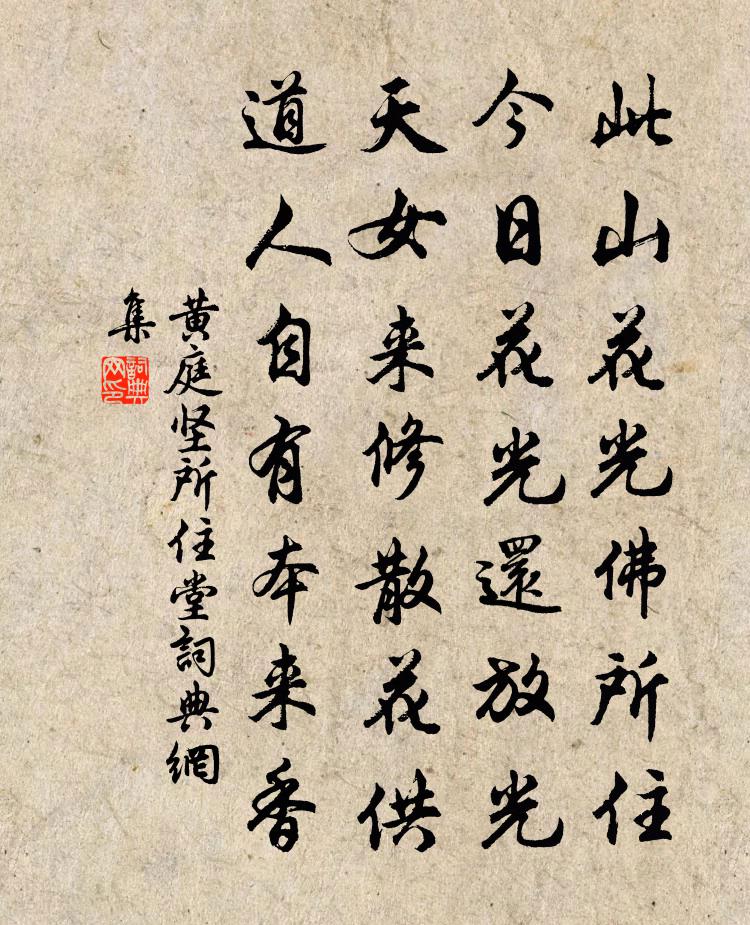 此山花光佛所住
今日花光還放光
天女来修散花供
道人自有本来香
黄庭坚所住堂詞典網
集
詞典网印